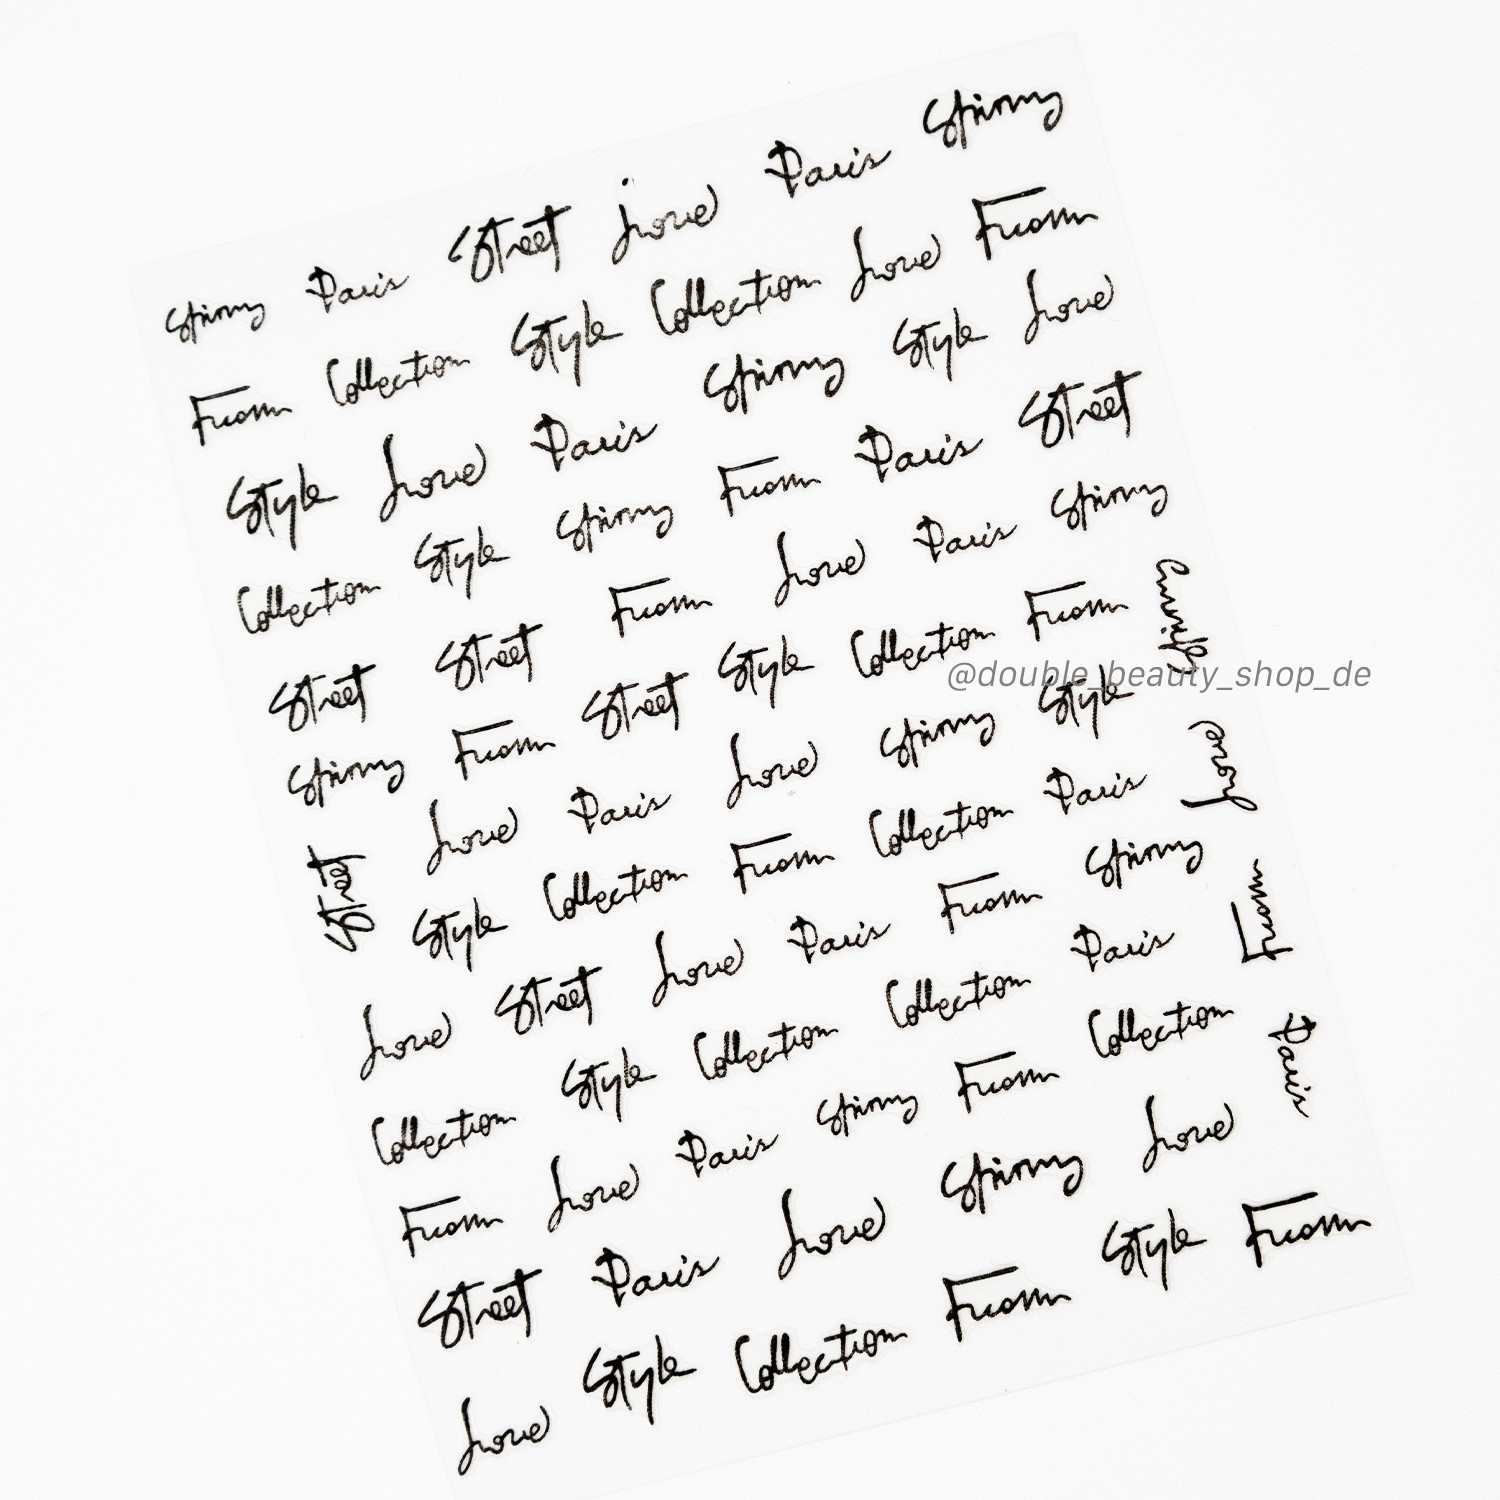 Paris Street Love Paris
From Collection Style Collection Love From
Style Love Paris Style Love
Collection Style From Paris Street
Street Street From Love Paris
From Street Style Collection From
@double_beauty_shop_de
Street Love Paris Love Style Love
Style Collection From Collection Paris
Love Street Love Paris From From
Collection Style Collection Collection Paris
From Love Paris From Collection Paris
Street Paris Love Love
Love Style Collection From Style From